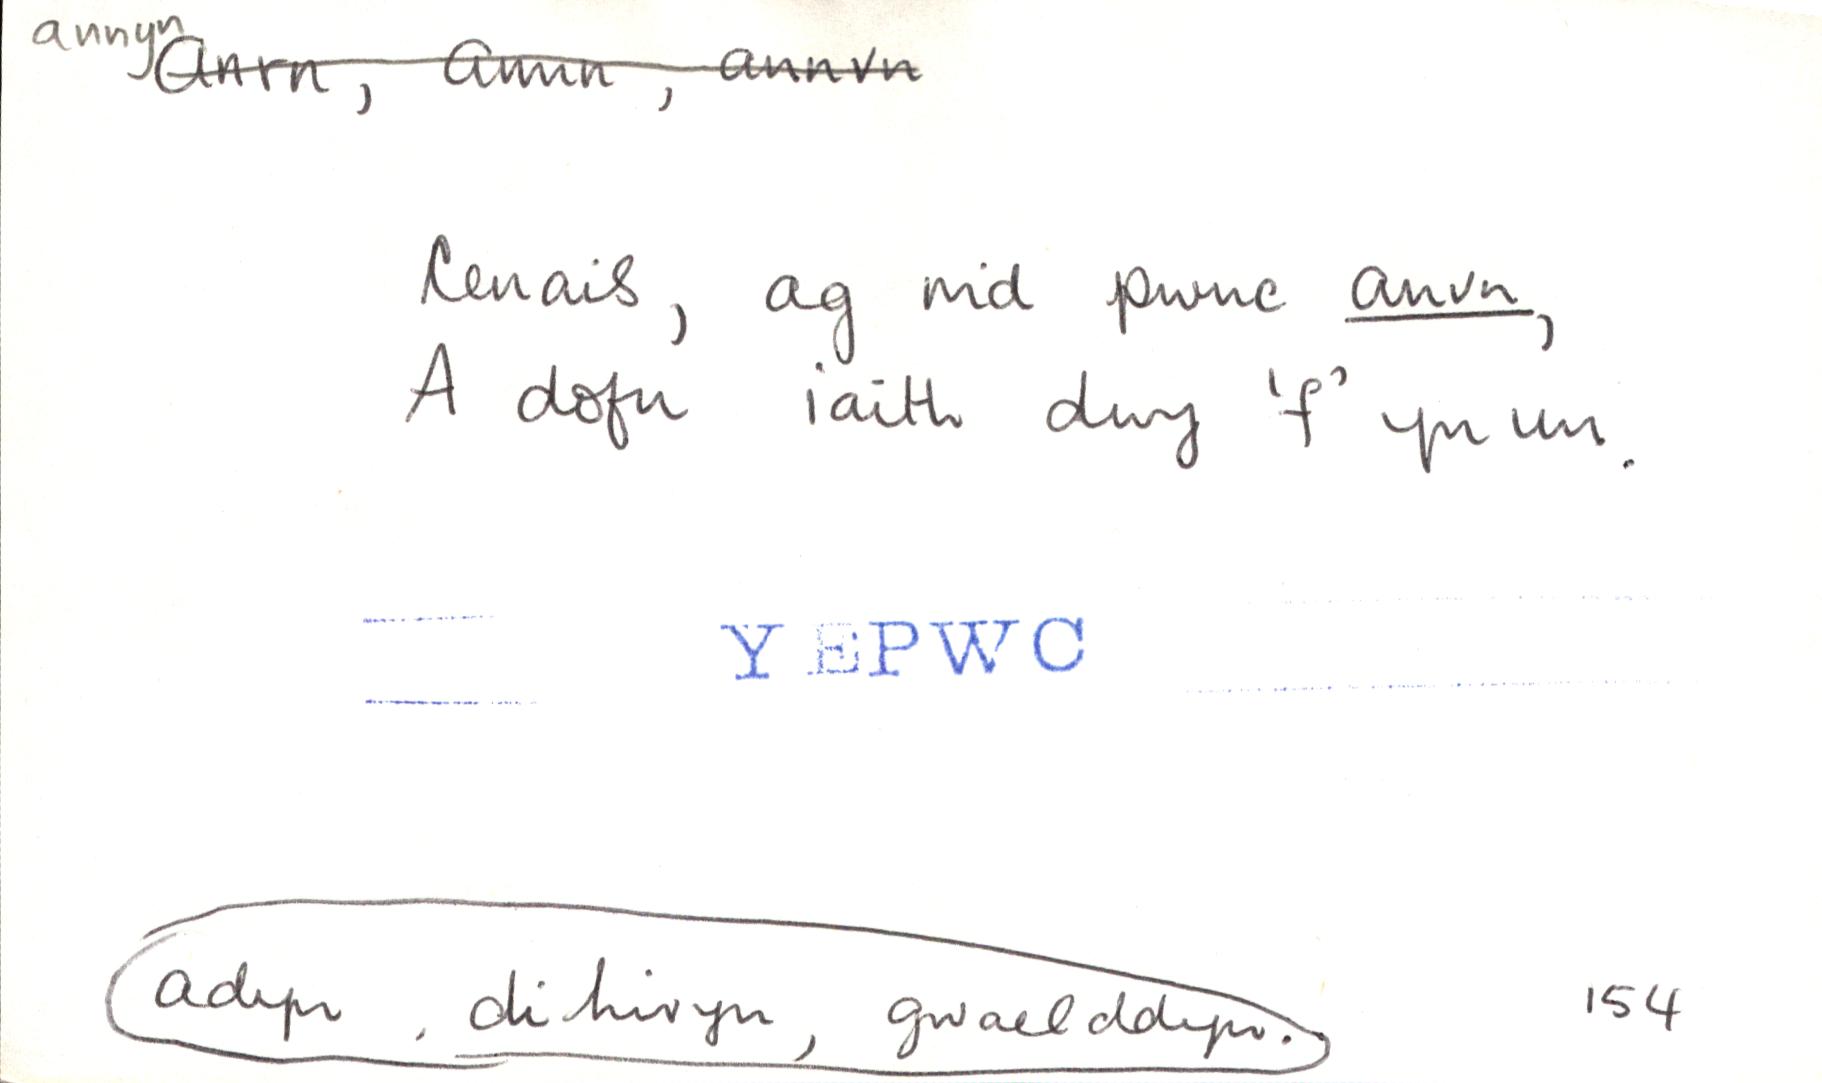 annyn
anrn, annn, annvn
Cenais, ag nid pwnc anvn,
A dofn iaith dwy 'f' yn un.
Y E P W C
adyn, dihiryn, gwaelddyn.
154